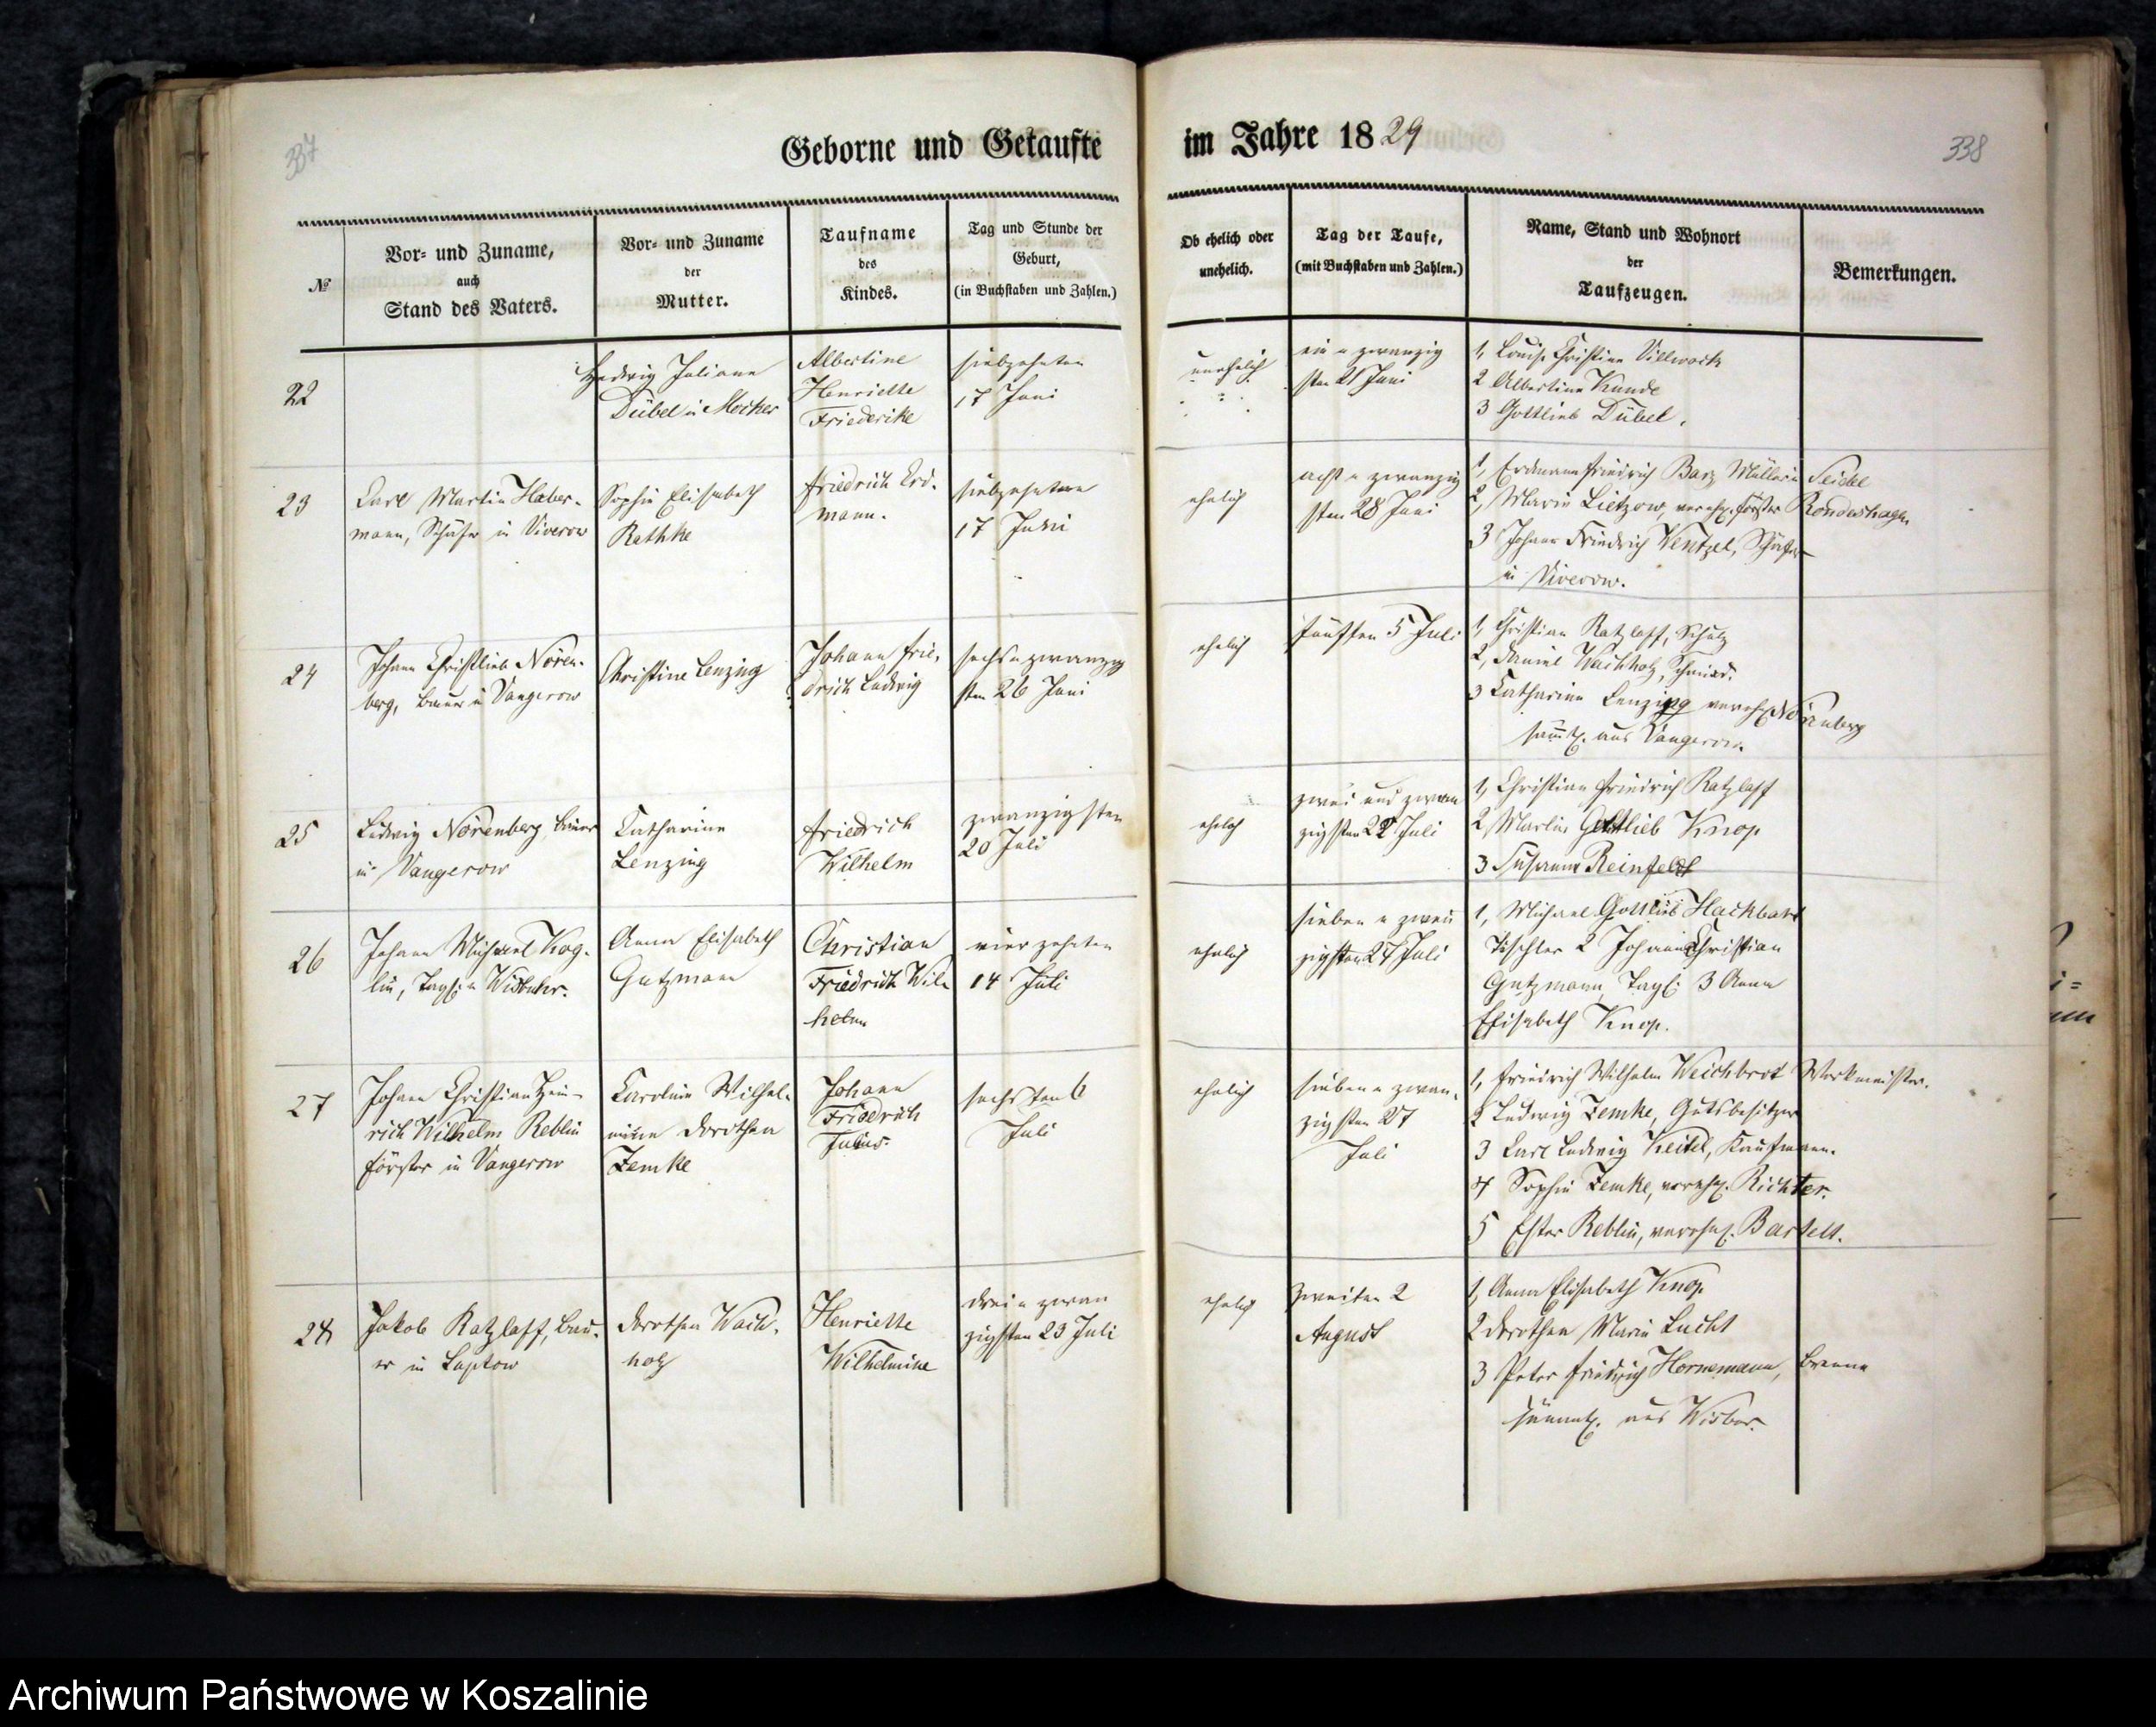 337
Geborne und Getaufte
im Jahre 1829
338
№
Vor- und Zuname,
auch
Stand des Vaters.
Vor- und Zuname
der
Mutter.
Taufname
des
Kindes.
Tag und Stunde der
Geburt,
(in Buchstaben und Zahlen.)
Ob ehelich oder
unehelich.
Tag der Taufe,
(mit Buchstaben und Zahlen.)
Name, Stand und Wohnort
der
Taufzeugen.
Bemerkungen.
22
Hedwig Juliane
Dübel in Mocker
Albertine
Henriette
Friederike
siebzehnten
17 Juni
unehelich
ein u zwanzig
sten 21 Juni
1, Louise Christine Villwock
2 Albertine Kunde
3 Gottlieb Dübel.
23
Carl Martin Haber-
mann, Schäfer in Viverow
Sophie Elisabeth
Rathke
Friedrich Erd-
mann.
siebzehnten
17 Juni
ehelich
acht u zwanzig
sten 28 Juni
1, Erdmann Friedrich Barz Müller in Seidel
2, Marie Lietzow, vereh. Förster Rondeshagen
3 Johann Friedrich Wentzel, Schäfer
in Viverow.
24
Johann Christlieb Nören-
berg, Bauer in Vangerow
Christine Lenzing
Johann Frie-
drich Ludwig
sechs u zwanzig
sten 26 Juni
ehelich
fünften 5 Juli
1, Christian Ratzlaff, Schulz
2, Daniel Wachholz, Schmied.
3 Catharine Lenzing vereh. Nörenberg
sämtl. aus Vangerow.
25
Ludwig Nörenberg, Bauer
in Vangerow
Catharine
Lenzing
Friedrich
Wilhelm
zwanzigsten
20 Juli
ehelich
zwei und zwan
zigsten 22 Juli
1, Christian Friedrich Ratzlaff
2 Martin Gottlieb Knop
3 Susanne Reinfeldt
26
Johann Michael Kog-
lin, Tagl. in Wisbuhr.
Anna Elisabeth
Gutzmann
Christian
Friedrich Wil-
helm
vierzehnten
14 Juli
ehelich
sieben u zwan
zigsten 27 Juli
1, Michael Gottlieb Hackbart
Tischler 2 Johann Christian
Gutzmann, Tagl. 3 Anna
Elisabeth Knop.
27
Johann Christian Hein-
rich Wilhelm Reblin
Förster in Vangerow
Caroline Wilhel-
mine Dorothea
Zemke
Johann
Friedrich
Julius.
sechsten 6
Juli
ehelich
sieben u zwan-
zigsten 27
Juli
1, Friedrich Wilhelm Weichbrot Werkmeister.
2 Ludwig Zemke, Gutsbesitzer
3 Carl Ludwig Keitel, Kaufmann.
4 Sophie Zemke, vereh. Richter.
5 Ester Reblin, verehel. Bartelt.
28
Jakob Ratzlaff, Bau-
er in Laptow
Dorothea Wach-
holz
Henriette
Wilhelmine
drei u zwan
zigsten 23 Juli
ehelich
zweiten 2
August
1, Anna Elisabeth Knop.
2 Dorothea Marie Lucht
3 Peter Friedrich Hornemann,
sämmtl. aus Wisbur.
Archiwum Państwowe w Koszalinie